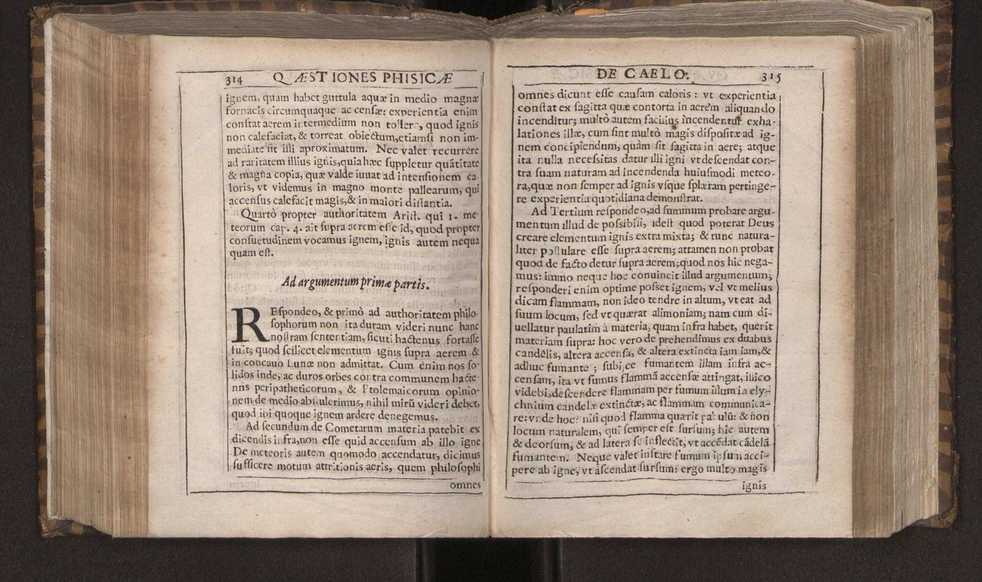 314 QVÆSTIONES PHISICÆ
ignem, quam habet guttula aquæ in medio magnæ
fornacis circumquaque accensæ: experientia enim
constat aerem intermedium non tollere, quod ignis
non calefaciat, & torreat obiectum, etiamsi non im-
mediate sit illi aproximatum. Nec valet recurrere
ad raritatem illius ignis, quia hæc suppletur quãtitate
& magna copia, quæ valde iuuat ad intensionem ca
loris, vt videmus in magno monte pallearum, qui
accensus calefacit magis, & in maiori distantia.
Quartò propter authoritatem Arist. qui 1. me
teorum cap. 4. ait supra aerem esse id, quod propter
consuetudinem vocamus ignem, ignis autem nequa
quam est.
Ad argumentum primæ partis.
REspondeo, & primò ad authoritatem philo-
sophorum non ita duram videri nunc hanc
nostram sententiam, sicuti hactenus fortasse
fuit; quod scilicet elementum ignis supra aerem &
in concauo Lunæ non admittat. Cum enim nos so-
lidos inde, ac duros orbes contra communem hacte-
nus peripatheticorum, & Ptolemaicorum opinio-
nem de medio abstulerimus, nihil mirũ videri debet,
quod ibi quoque ignem ardere denegemus.
Ad secundum de Cometarum materia patebit ex
dicendis infra, non esse quid accensum ab illo igne
De meteoris autem quomodo accendatur, dicimus
sufficere motum attritionis aeris, quem philosophi
omnes
DE CAELO. 315
omnes dicunt esse causam caloris: vt experientia
constat ex sagitta quæ contorta in aerem aliquando
incenditur; multò autem facilius incendentur exha-
lationes illæ, cum sint multò magis dispositæ ad ig-
nem concipiendum, quàm sit sagitta in aere; atque
ita nulla necessitas datur illi igni vt descendat con-
tra suam naturam ad incendenda huiusmodi meteo-
ra, quæ non semper ad ignis vsque sphæram pertinge-
re experientia quotidiana demonstrat.
Ad Tertium respondeo, ad summum probare argu-
mentum illud de possibili, idest quod poterat Deus
creare elementum ignis extra mixta; & tunc natura-
liter postulare esse supra aerem; attamen non probat
quod de facto detur supra aerem; quod nos hic nega-
mus: immo neque hoc conuincit illud argumentum;
responderi enim optime posset ignem, vel vt melius
dicam flammam, non ideo tendre in altum, vt eat ad
suum locum, sed vt quærat alimoniam; nam cum di-
uellatur paulatim à materia, quam infra habet, querit
materiam supra: hoc vero deprehendimus ex duabus
candelis, altera accensa, & altera extincta iam iam, &
adhuc fumante; subijce fumantem illam infra ac-
censam, ita vt fumus flammã accensæ attingat, illico
videbis descendere flammam per fumum illum in ely-
chnium candelæ extinctæ, ac flammam communica-
re: vnde hoc? nisi quod flamma quærit pabulũ: & non
locum naturalem, qui semper est sursum; hic autem
& deorsum, & ad latera se inflectit, vt accẽdat cãdelã
fumantem. Neque valet instare fumum ipsum acci-
pere ab igne, vt ascendat sursum: ergo multo magis
ignis